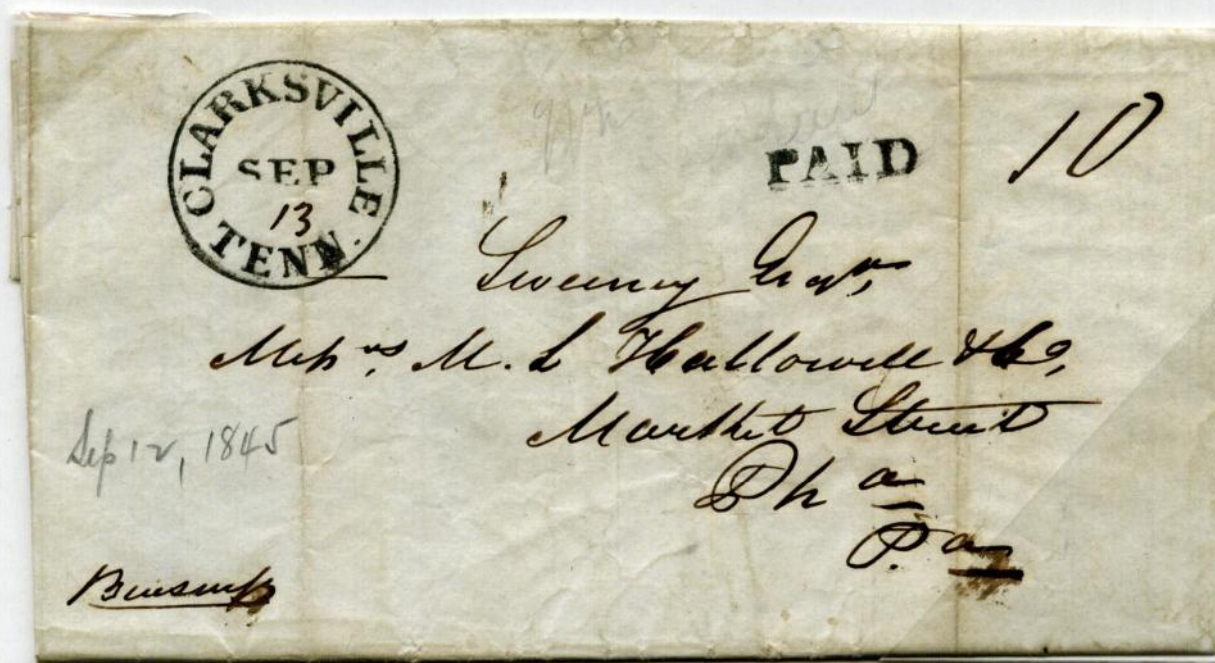 CLARKSVILLE
SEP
13
TENN.
PAID
10
Sweeney Esqr,
Messrs, M. L Hallowell & Co,
Market Street
Pha
Pa
Sep 12, 1845